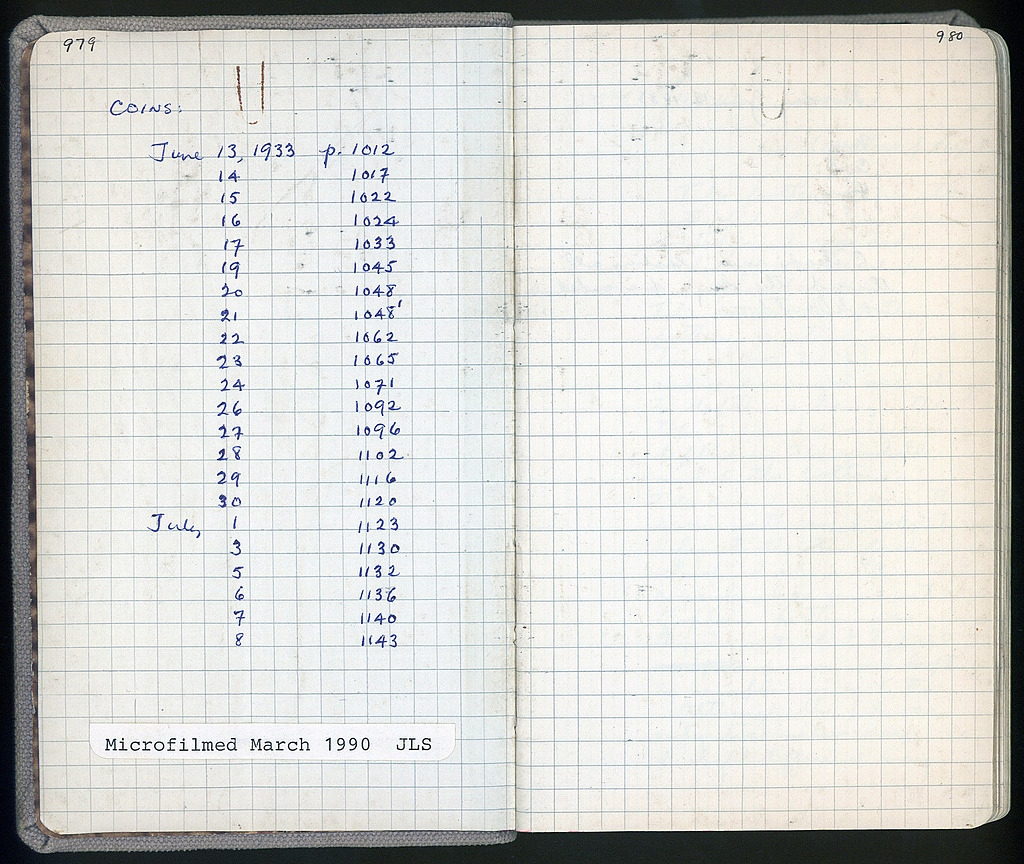 979
COINS:
June 13, 1933 p. 1012
14 1017
15 1022
16 1024
17 1033
19 1045
20 1048
21 1048'
22 1062
23 1065
24 1071
26 1092
27 1096
28 1102
29 1116
30 1120
July 1 1123
3 1130
5 1132
6 1136
7 1140
8 1143
Microfilmed March 1990 JLS
980